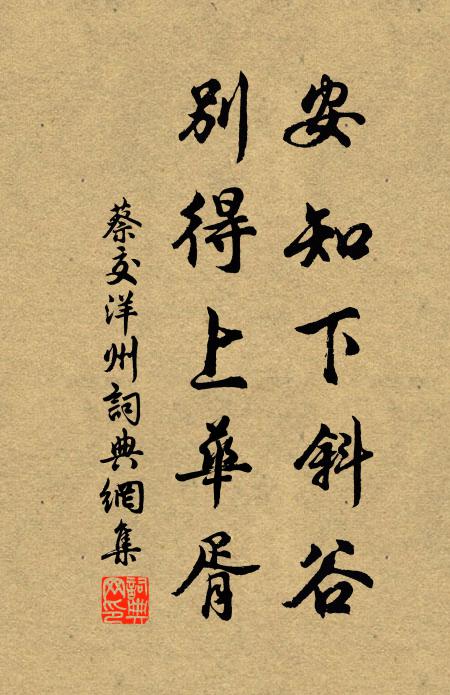 安知下斜谷
別得上華胥
蔡交洋州詞典網集
詞典网印